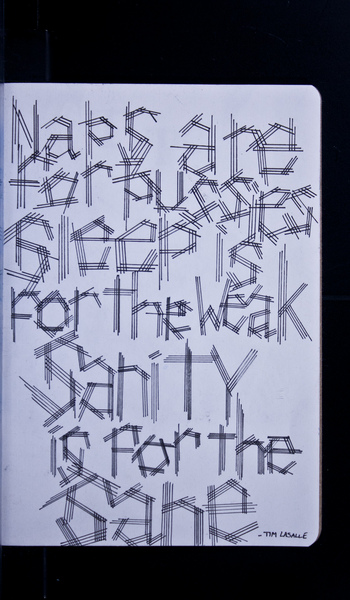 Naps are
for Pussies
Sleep is
For the weak
SaniTY
is for the
Sane
- TIM LASALLE